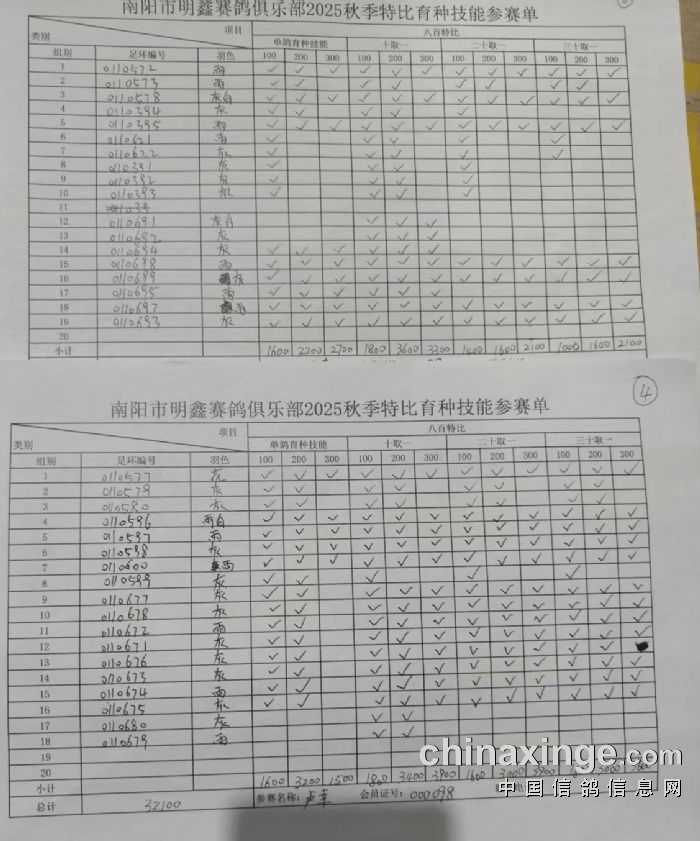 南阳市明鑫赛鸽俱乐部2025秋季特比育种技能参赛单
类别 项目 八百特比
单鸽育种技能 十取一 二十取一 三十取一
组别 足环编号 羽色 100 200 300 100 200 300 100 200 300 100 200 300
1 0110572 雨 ✓ ✓ ✓ ✓ ✓ ✓ ✓ ✓ ✓ ✓ ✓ ✓
2 0110573 雨
3 0110578 灰白
4 0110394 灰
5 0110395 雨
6 0110621 雨
7 0110622 灰
8 0110391 灰
9 0110392 灰
10 0110393 灰
11
12 0110691 灰白
13 0110692 灰
14 0110694 灰
15 0110688 雨
16 0110689 灰
17 0110695 雨
18 0110697 雨
19 0110693 灰
20
小计 1600 2200 2700 1800 3600 3300 1400 1600 2100 1000 1600 2100
4
南阳市明鑫赛鸽俱乐部2025秋季特比育种技能参赛单
类别 项目 八百特比
单鸽育种技能 十取一 二十取一 三十取一
组别 足环编号 羽色 100 200 300 100 200 300 100 200 300 100 200 300
1 0110577 灰
2 0110579 灰
3 0110580 灰
4 0110596 雨白
5 0110597 雨
6 0110598 灰
7 0110600 雨
8 0110599 灰
9 0110677 灰
10 0110678 灰
11 0110672 雨
12 0110671 灰
13 0110676 灰
14 0110673 灰
15 0110674 雨
16 0110675 灰
17 0110680 灰
18 0110679 雨
19
20
小计 1600 3200 1500 1800 3400 3900 1600
总计 32100 参赛名称: 会员证号: 000098
chinaxinge.com
中国信鸽信息网